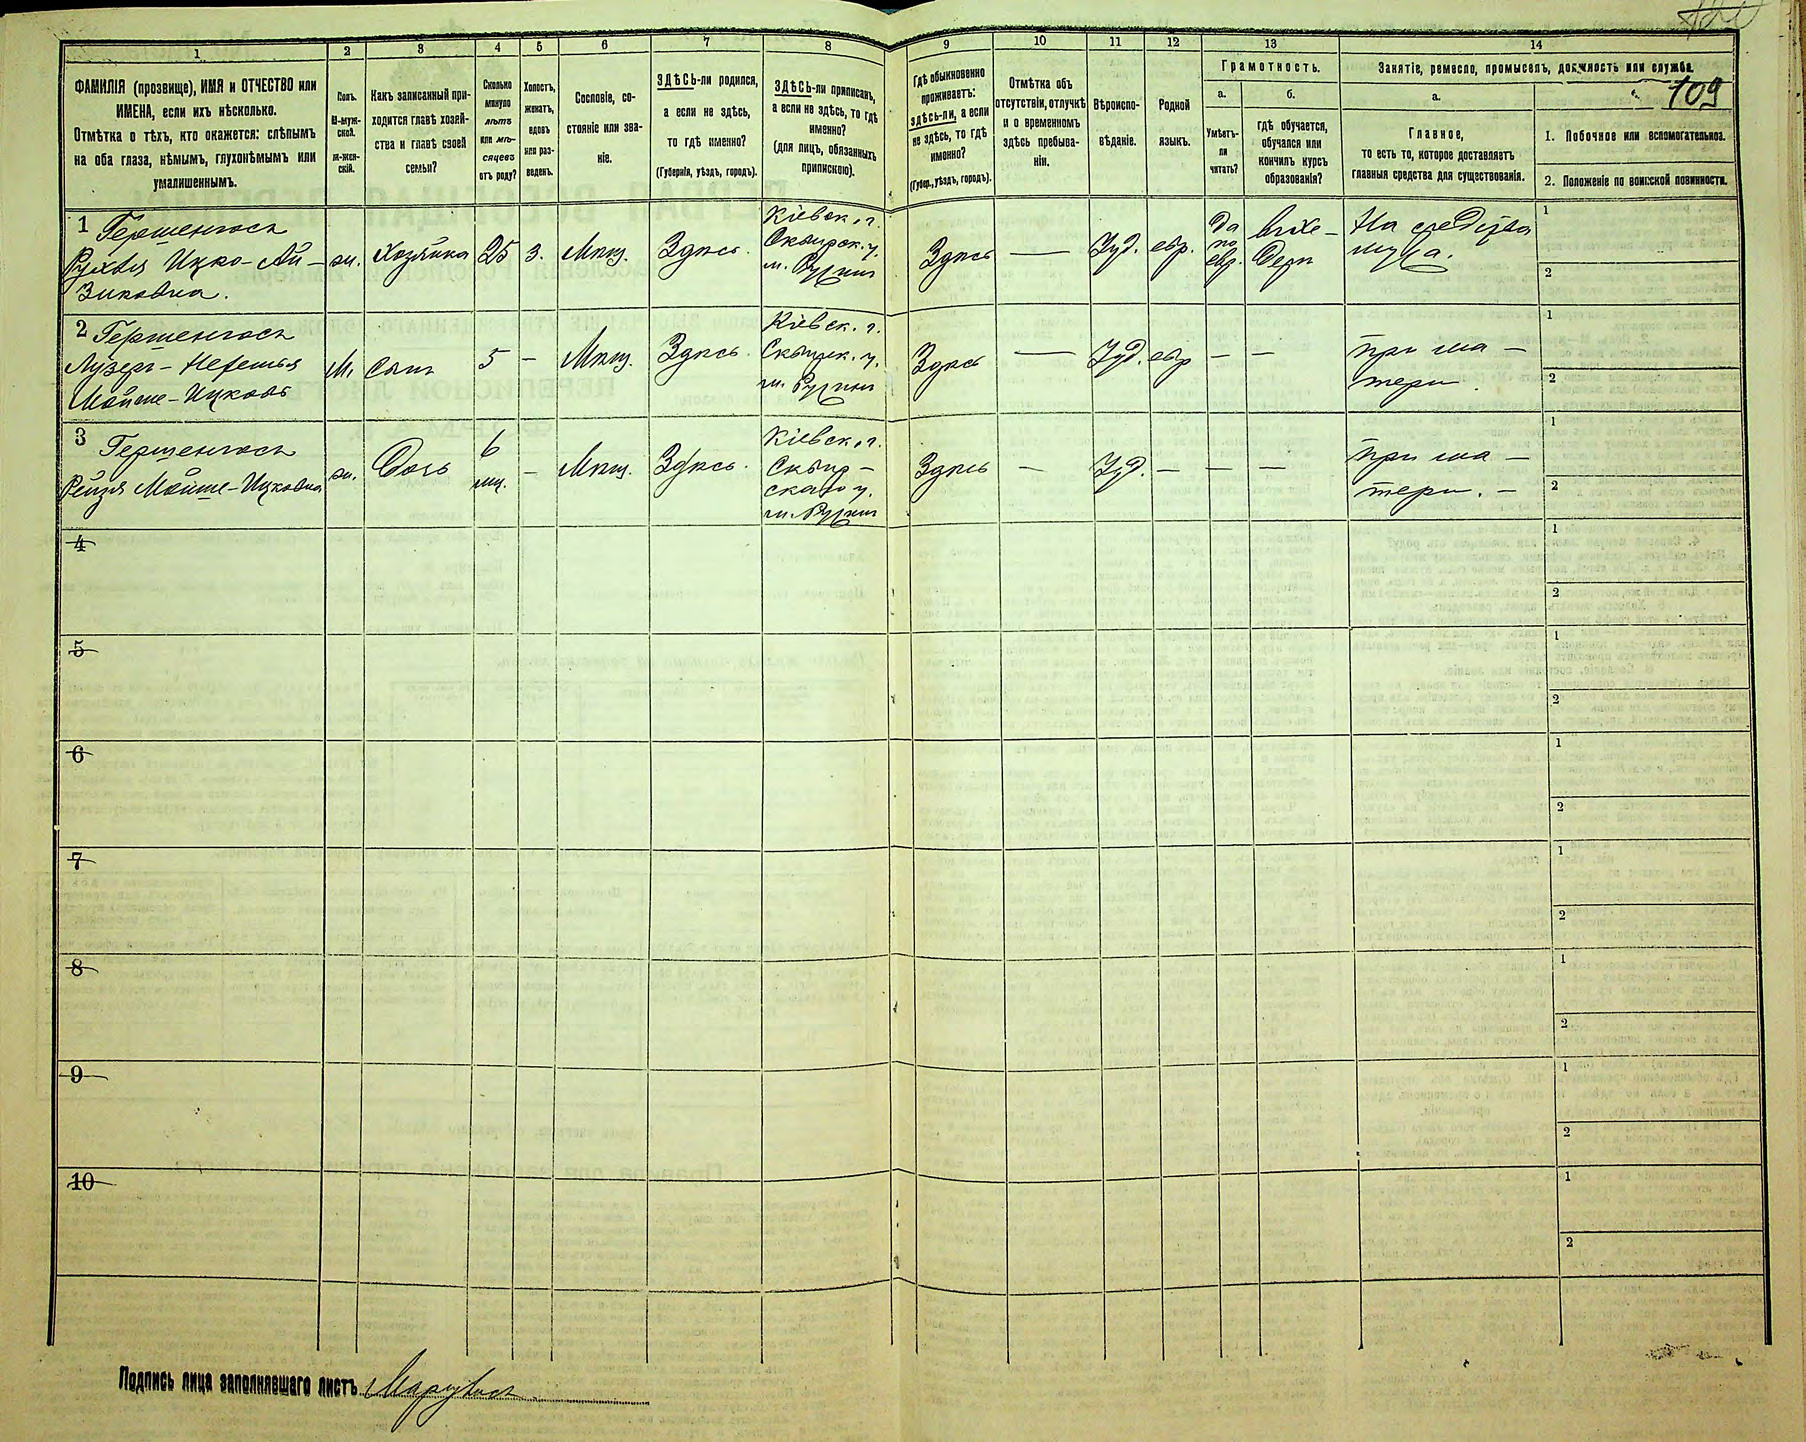 109
1 2 3 4 5 6 7 8 9 10 11 12 13 14
ФАМИЛІЯ (прозвище), ИМЯ и ОТЧЕСТВО или
ИМЕНА, если ихъ нѣсколько.
Отмѣтка о тѣхъ, кто окажется: слѣпымъ
на оба глаза, нѣмымъ, глухонѣмымъ или
умалишеннымъ.
Полъ.
М-муж-
ской.
ж-жен-
скій.
Какъ записанный при-
ходится главѣ хозяй-
ства и главѣ своей
семьи?
Сколько
минуло
лѣтъ
или мѣ-
сяцевъ
отъ роду?
Холостъ,
женатъ,
вдовъ
или раз-
веденъ.
Сословіе, со-
стояніе или зва-
ніе.
ЗДѢСЬ-ли родился,
а если не здѣсь,
то гдѣ именно?
(Губернія, уѣздъ, городъ).
ЗДѢСЬ-ли приписанъ,
а если не здѣсь, то гдѣ
именно?
(для лицъ, обязанныхъ
припискою).
Гдѣ обыкновенно
проживаетъ:
здѣсь-ли, а если
не здѣсь, то гдѣ
именно?
(Губер., уѣздъ, городъ).
Отмѣтка объ
отсутствіи, отлучкѣ
и о временномъ
здѣсь пребыва-
ніи.
Вѣроиспо-
вѣданіе.
Родной
языкъ.
Грамотность.
а.
Умѣетъ-
ли
читать?
б.
гдѣ обучается,
обучался или
кончилъ курсъ
образованія?
Занятіе, ремесло, промыселъ, должность или служба.
а.
Главное,
то есть то, которое доставляетъ
главныя средства для существованія.
1. Побочное или вспомогательное.
2. Положеніе по воинской повинности.
1
Гершенгоснъ
Ицко-Ай-
зиковна.
ж.
Хозяйка
25
з.
Мѣщ.
Здѣсь
Кіевск. г.
Сквирск. у.
м. Ружинъ
Здѣсь
—
Іуд.
евр.
да
по
евр.
въ хе-
дерѣ
На средства
мужа.
1
2
2
Мойше-Ицковъ
М.
Сынъ
5
—
Мѣщ.
Здѣсь
Кіевск. г.
Сквирск. у.
м. Ружинъ
Здѣсь
—
Іуд.
евр
—
—
при ма-
тери.
1
2
3
Рейзя Мойше-Ицковна
ж.
Дочь
6
мц.
—
Мѣщ.
Здѣсь.
Кіевск. г.
Сквир-
скаго у.
м. Ружинъ
Здѣсь
—
Іуд.
—
—
—
при ма-
тери. —
1
2
4
1
2
5
1
2
6
1
2
7
1
2
8
1
2
9
1
2
10
1
2
Подпись лица заполнявшаго листъ